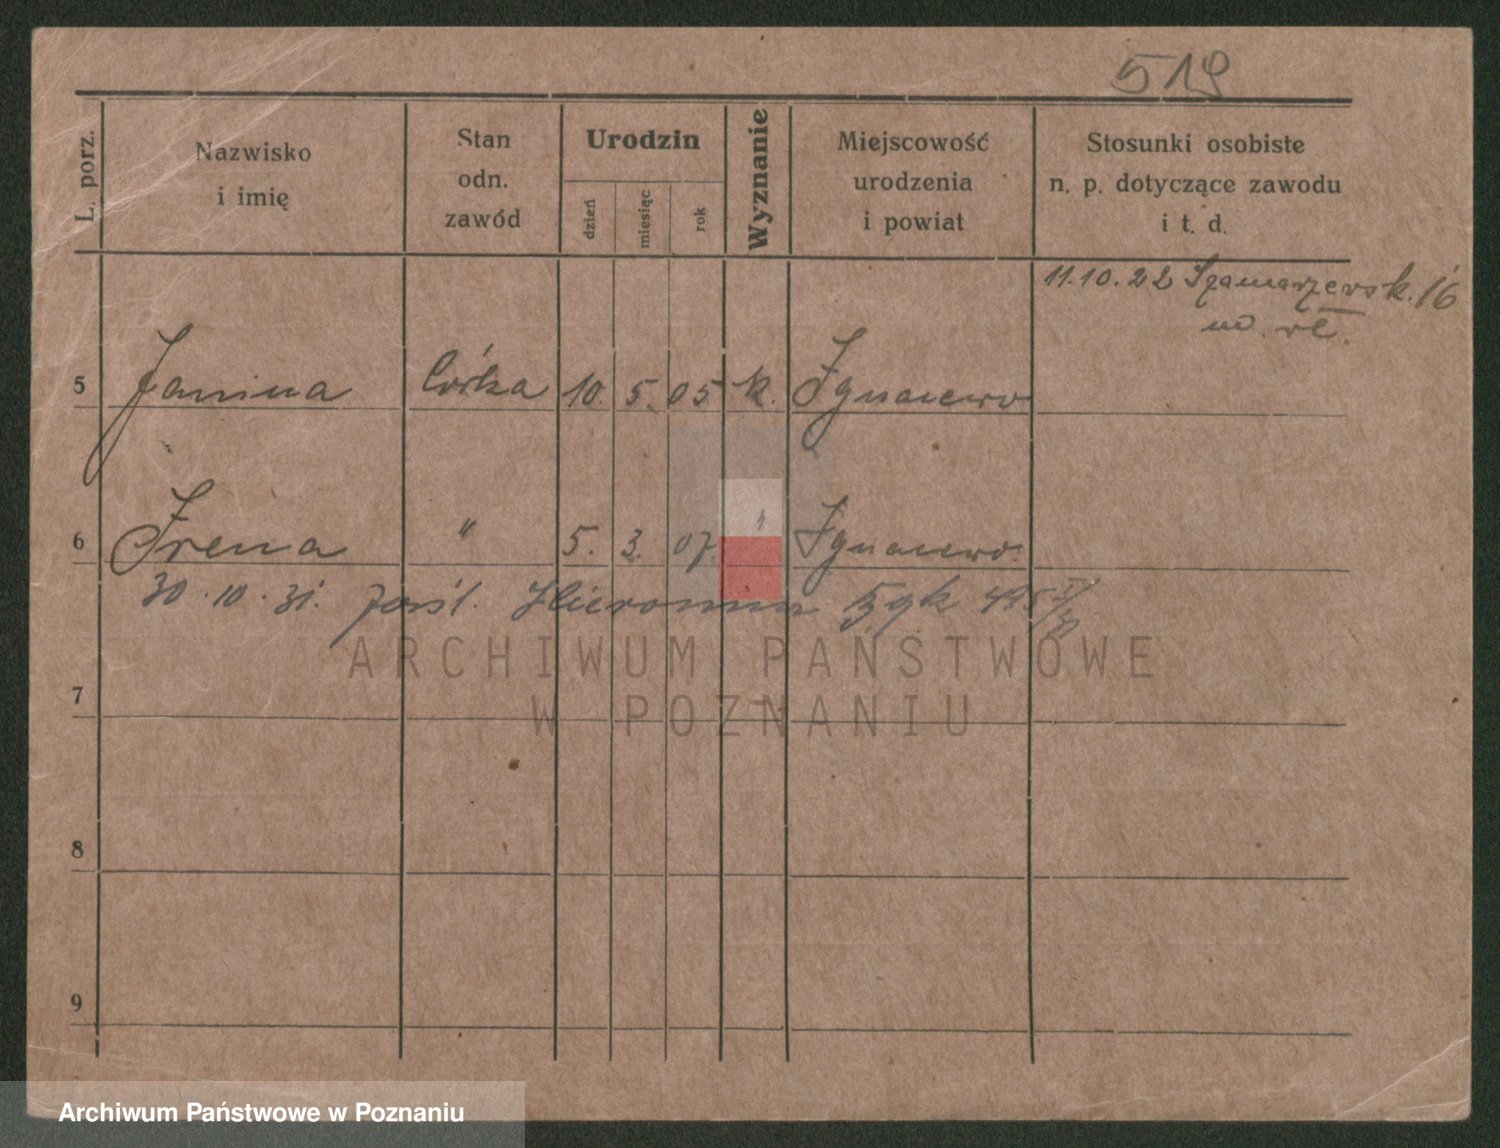 519
L. porz.
Nazwisko
i imię
Stan
odn.
zawód
Urodzin
dzień
miesiąc
rok
Wyznanie
Miejscowość
urodzenia
i powiat
Stosunki osobiste
n. p. dotyczące zawodu
i t. d.
11.10.22 Szamarzewsk. 16
5 Janina Córka 10. 5. 05 k. Ignacewo
6 Irena " 5. 3. 07. " Ignacewo.
30.10.31. zaśl. Hieronim
ARCHIWUM PAŃSTWOWE
W POZNANIU
7
8
9
Archiwum Państwowe w Poznaniu